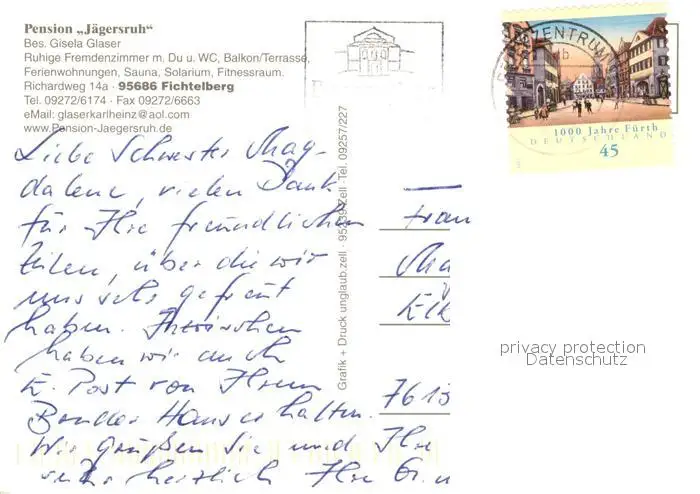 Pension „Jägersruh“
Bes. Gisela Glaser
Ruhige Fremdenzimmer m. Du u. WC, Balkon/Terrasse,
Ferienwohnungen, Sauna, Solarium, Fitnessraum.
Richardweg 14a · 95686 Fichtelberg
Tel. 09272/6174 · Fax 09272/6663
eMail: glaserkarlheinz@aol.com
www.Pension-Jaegersruh.de
Liebe Schwester Mag-
dalene, vielen Dank
für Ihre freundlichen
Zeilen, über die wir
uns sehr gefreut
haben. Inzwischen
haben wir auch
E. Post von Ihrem
Bruder Hans erhalten.
Wir grüßen Sie und Ihre
sehr herzlich Ihre
Grafik + Druck unglaub.zell · 95239 Zell · Tel. 09257/227
ZENTRUM
1000 Jahre Fürth
DEUTSCHLAND
45
Frau
Ma
Elk
7613
privacy protection
Datenschutz